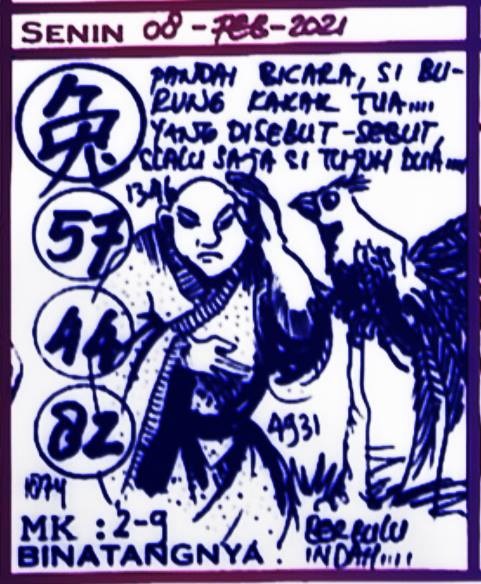 SENIN 08 - FEB - 2021
PANDAI BICARA, SI BU-
RUNG KAKAK TUA....
YANG DISEBUT-SEBUT,
SLALU SAJA SI TUJUH DUA....
兔
1346
57
44
82
4931
1074
MK : 2-9
BERBULU
BINATANGNYA : INDAH....